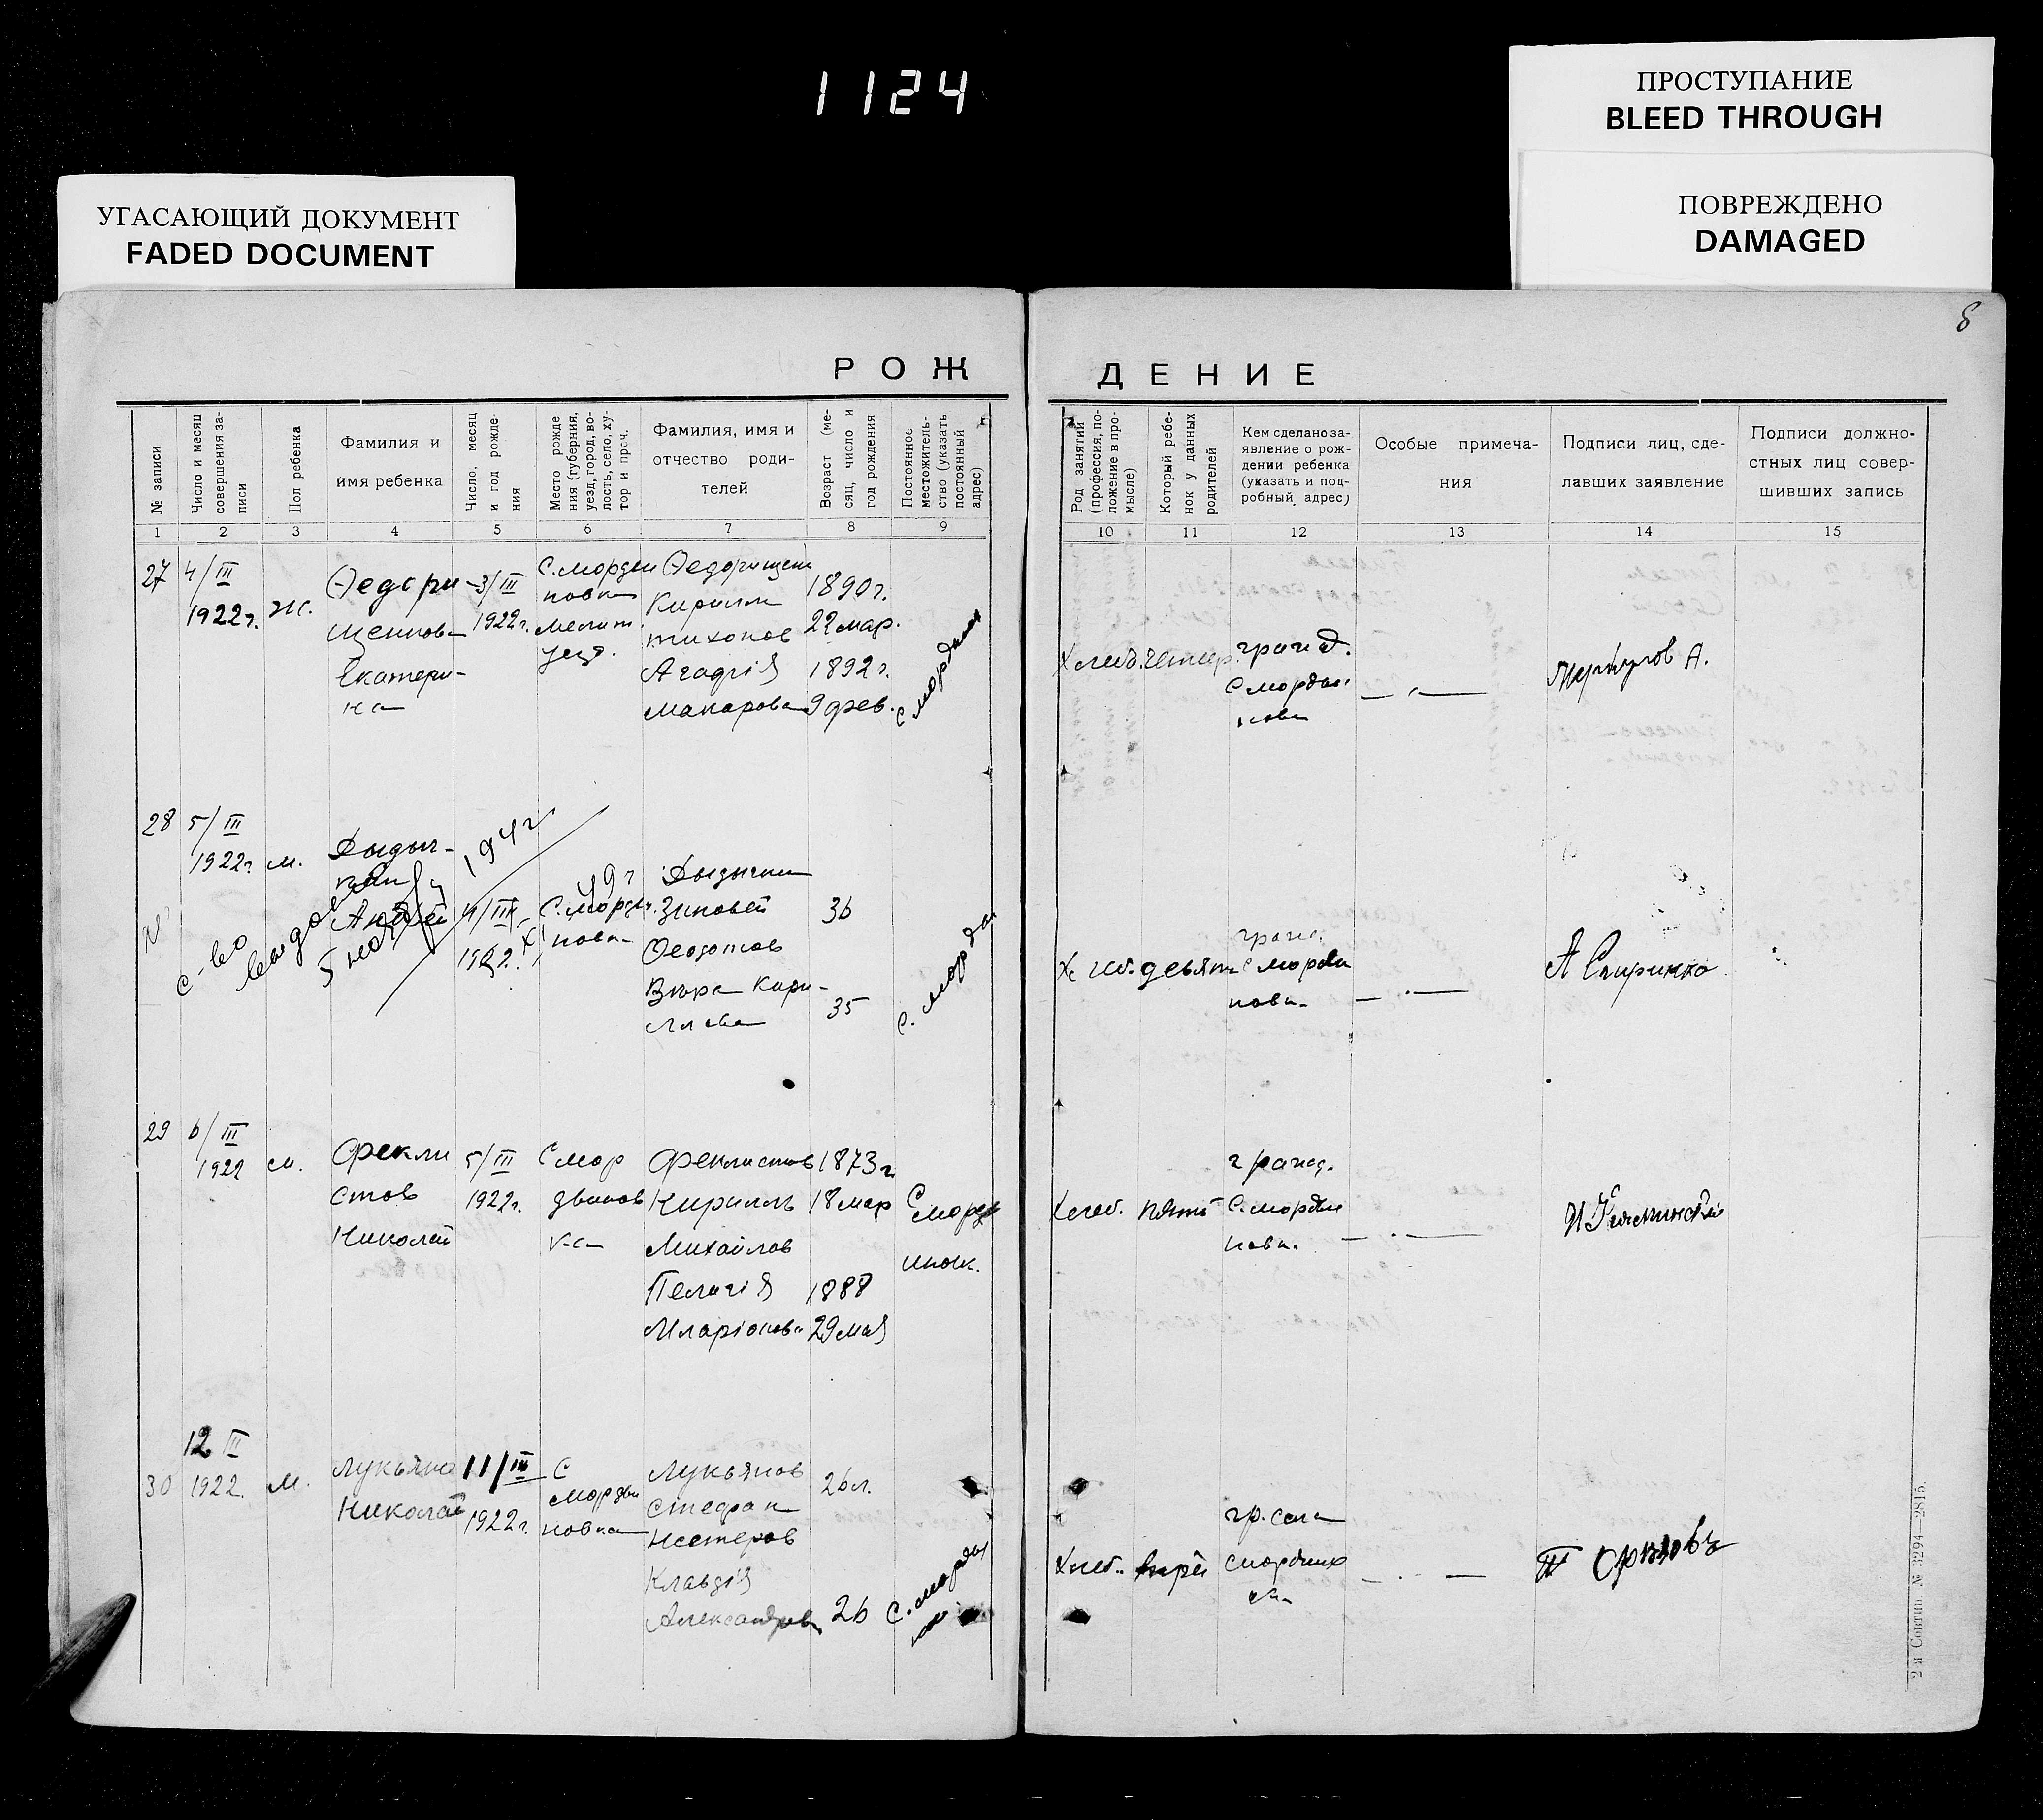 1124
ПРОСТУПАНИЕ
BLEED THROUGH
ПОВРЕЖДЕНО
DAMAGED
УГАСАЮЩИЙ ДОКУМЕНТ
FADED DOCUMENT
8
РОЖДЕНИЕ
№ записи
Число и месяц совершения записи
Пол ребенка
Фамилия и
имя ребенка
Число, месяц
и год рожде-
ния
Место рожде
ния (губерния,
уезд, город, во-
лость, село, ху-
тор и проч.
Фамилия, имя и
отчество роди-
телей
Возраст (ме-
сяц, число и
год рождения
Постоянное
местожитель-
ство (указать
постоянный
адрес)
Род занятий
(профессия, по-
ложение в про-
мысле)
Который ребе-
нок у данных
родителей
Кем сделано за-
явление о рож-
дении ребенка
(указать и под-
робный адрес)
Особые примеча-
ния
Подписи лиц, сде-
лавших заявление
Подписи должно-
стных лиц совер-
шивших запись
1 2 3 4 5 6 7 8 9 10 11 12 13 14 15
27
4/III
1922г.
ж.
Федори-
щенкова
Екатери-
на
3/III
1922г.
С. мордви
новка
мелит.
уезд.
Кирилл
тихонов
Агафiя
макарова
1890г.
22 мар.
1892г.
9 фев.
Хлеб.
гражд.
С мордви
нова
28
5/III
1922г.
м.
Андрей
194 г
4/III
1922.
С. мордв.
нова
Зиновей
Федотов
Вѣра Кири-
лова
36
35
девят
гражд.
С мордви
нова
29
6/III
1922
м.
Фекли
стов
Николай
5/III
1922г.
С мор
двинов
ка
Феклистов
Кириллъ
Михайлов
Пелагiя
Иларiонова
1873г.
18 мар
1888
29 мая
С мордв
Хлеб.
пять
гражд.
С. мордви
нова.
30
12 II
1922.
м.
Лукьяно
Николай
11/III
1922г.
С
мордви
новка
Лукьянов
Стефан
Нестеров
Клавдiя
Александров
26 л.
26
Хлеб.
гр. села
2-я Совтип. № 3294—2815.